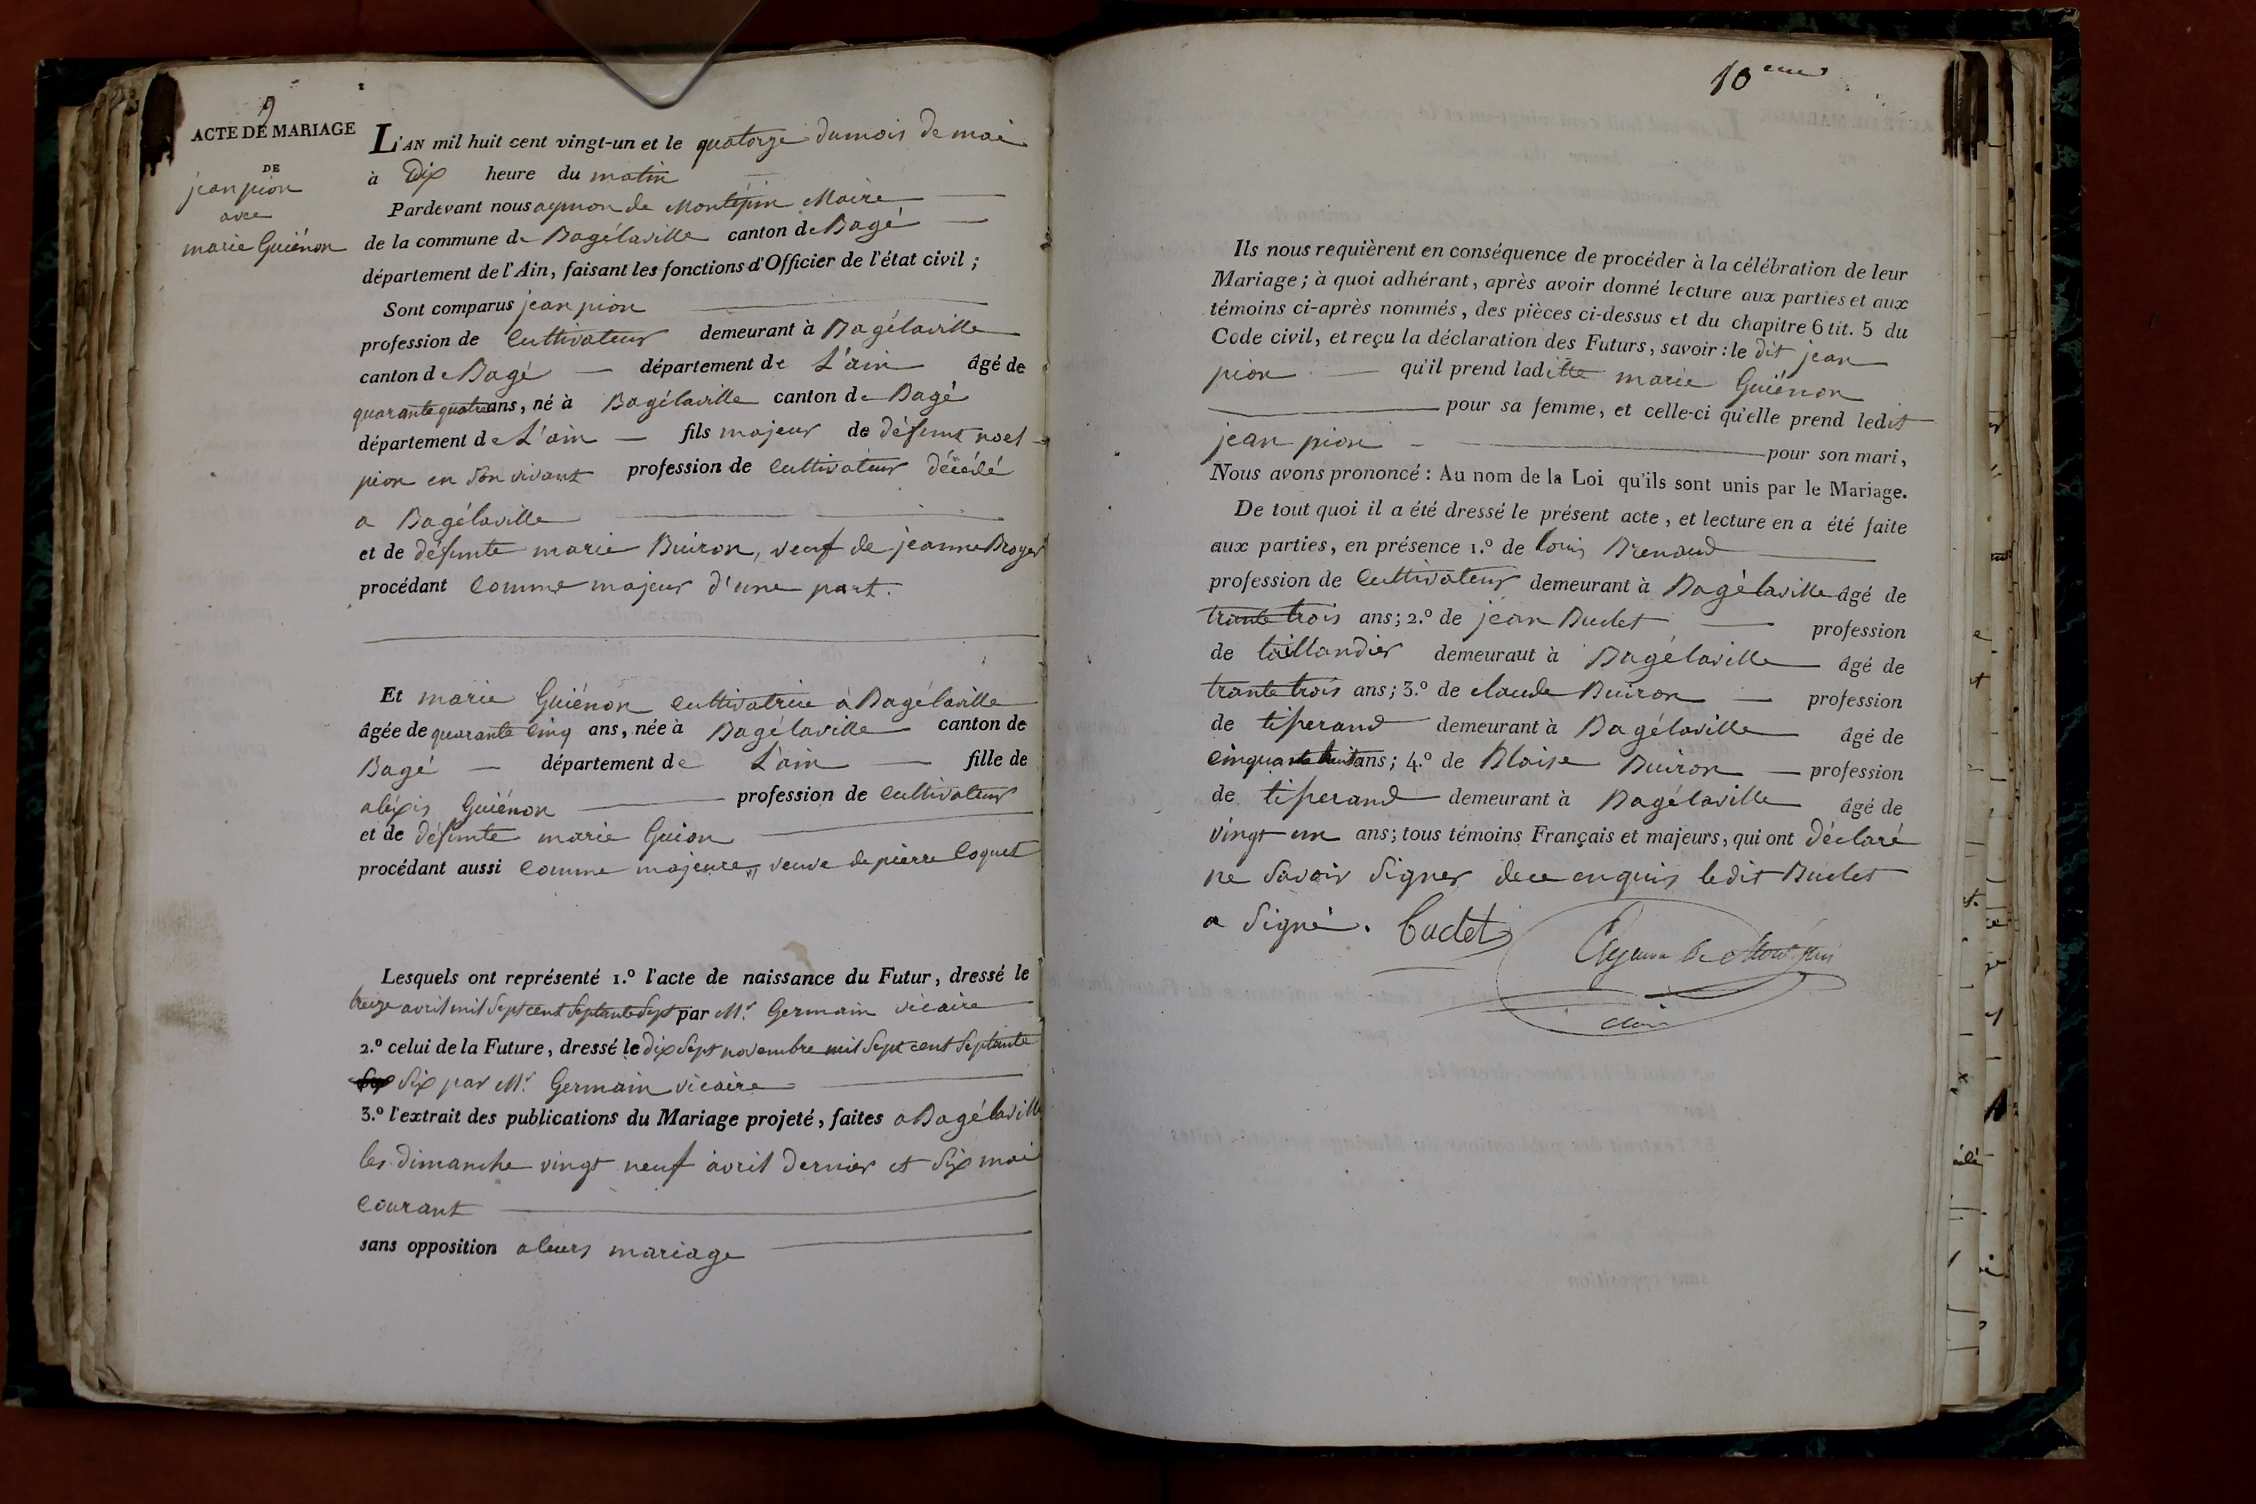 9
ACTE DE MARIAGE
DE
jean pion
avec
marie Guiénon
L'AN mil huit cent vingt-un et le quatorze du mois de mai
à Dix heure du matin
Pardevant nous aymon de Montépin Maire
de la commune de Bagélaville canton de Bagé
département de l'Ain, faisant les fonctions d'Officier de l'état civil ;
Sont comparus jean pion
profession de Cultivateur demeurant à Bagélaville
canton de Bagé département de L'ain âgé de
quarante quatre ans, né à Bagélaville canton de Bagé
département de L'ain fils majeur de défunt noel
pion en son vivant profession de Cultivateur décédé
a Bagélaville
et de défunte marie Buiron, veuf de jeanne Broyer
procédant Comme majeur d'une part.
Et marie Guiénon Cultivatrice à Bagélaville
âgée de quarante Cinq ans, née à Bagélaville canton de
Bagé département de L'ain fille de
aléxis Guiénon profession de Cultivateur
et de défunte marie Guion
procédant aussi Comme majeure, veuve de pierre Coquet
Lesquels ont représenté 1.° l'acte de naissance du Futur, dressé le
treize avril mil Sept cent Septante Sept par Mr. Germain vicaire
2.° celui de la Future, dressé le dix Sept novembre mil Sept cent Septante
Six par Mr. Germain vicaire
3.° l'extrait des publications du Mariage projeté, faites a Bagélaville
les dimanche vingt neuf avril dernier et Six mai
Courant
sans opposition a leurs mariage
10eme
Ils nous requièrent en conséquence de procéder à la célébration de leur
Mariage ; à quoi adhérant, après avoir donné lecture aux parties et aux
témoins ci-après nommés, des pièces ci-dessus et du chapitre 6 tit. 5 du
Code civil, et reçu la déclaration des Futurs, savoir : le dit jean
pion qu'il prend laditte marie Guiénon
pour sa femme, et celle-ci qu'elle prend ledit
jean pion pour son mari,
Nous avons prononcé : Au nom de la Loi qu'ils sont unis par le Mariage.
De tout quoi il a été dressé le présent acte, et lecture en a été faite
aux parties, en présence 1.° de louis Brenaud
profession de Cultivateur demeurant à Bagélaville âgé de
trante trois ans ; 2.° de jean Buclet profession
de taillandier demeuraut à Bagélaville âgé de
trante trois ans ; 3.° de claude Buiron profession
de tiserand demeurant à Bagélaville âgé de
cinquante huit ans ; 4.° de Blaise Buiron profession
de tiserand demeurant à Bagélaville âgé de
vingt un ans ; tous témoins Français et majeurs, qui ont déclaré
ne Savoir Signer de ce enquis ledit Buclet
a Signé. Buclet
Aymon de Montépin